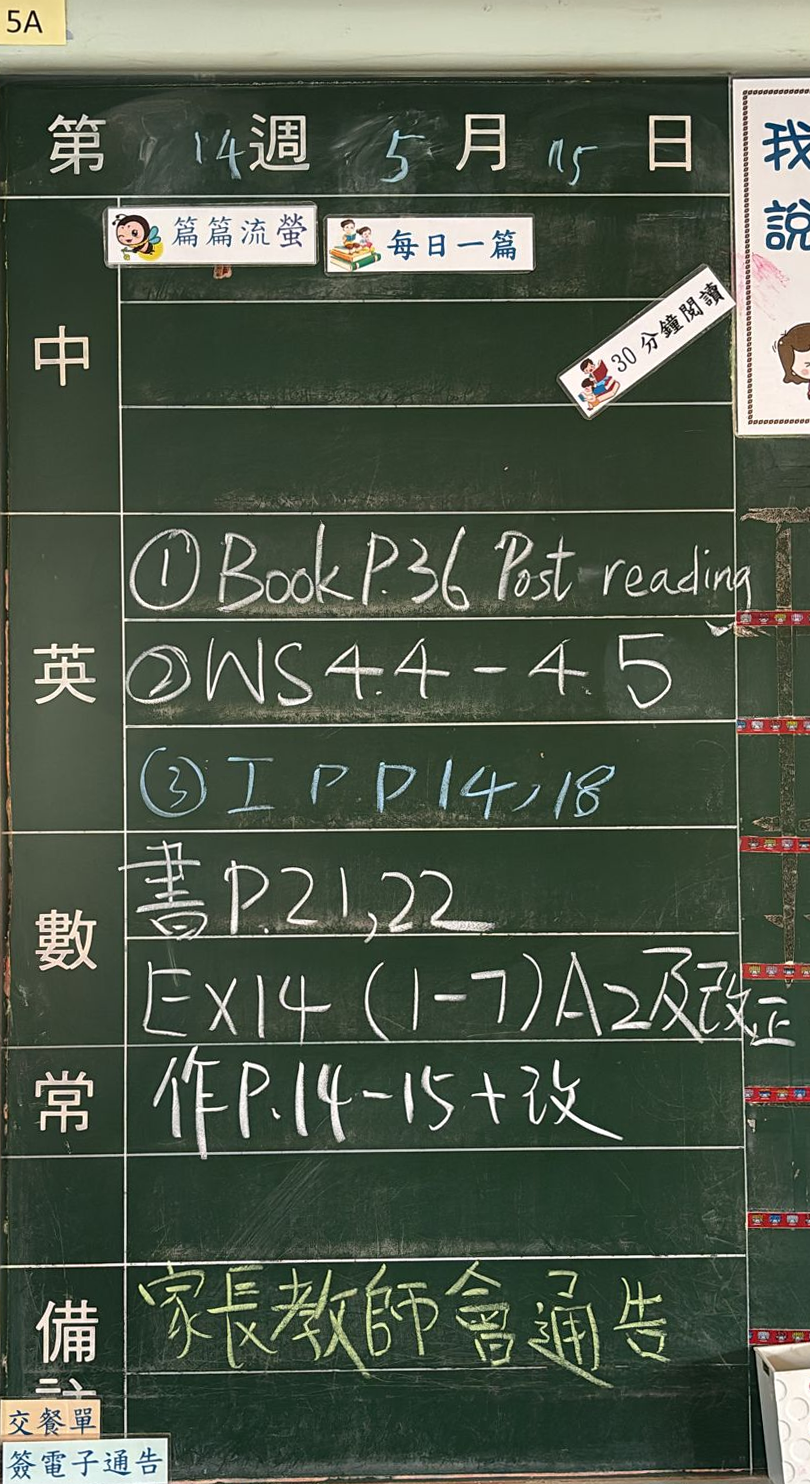 5A
第 14 週 5 月 15 日
我
說
中
篇篇流螢
每日一篇
30分鐘閱讀
英
① Book P.36 Post reading
② WS 4.4 - 4.5
③ I P P 14, 18
數
書 P.21, 22
EX14 (1-7) A2及改正
常
作P.14-15+改
備註
家長教師會通告
交餐單
簽電子通告